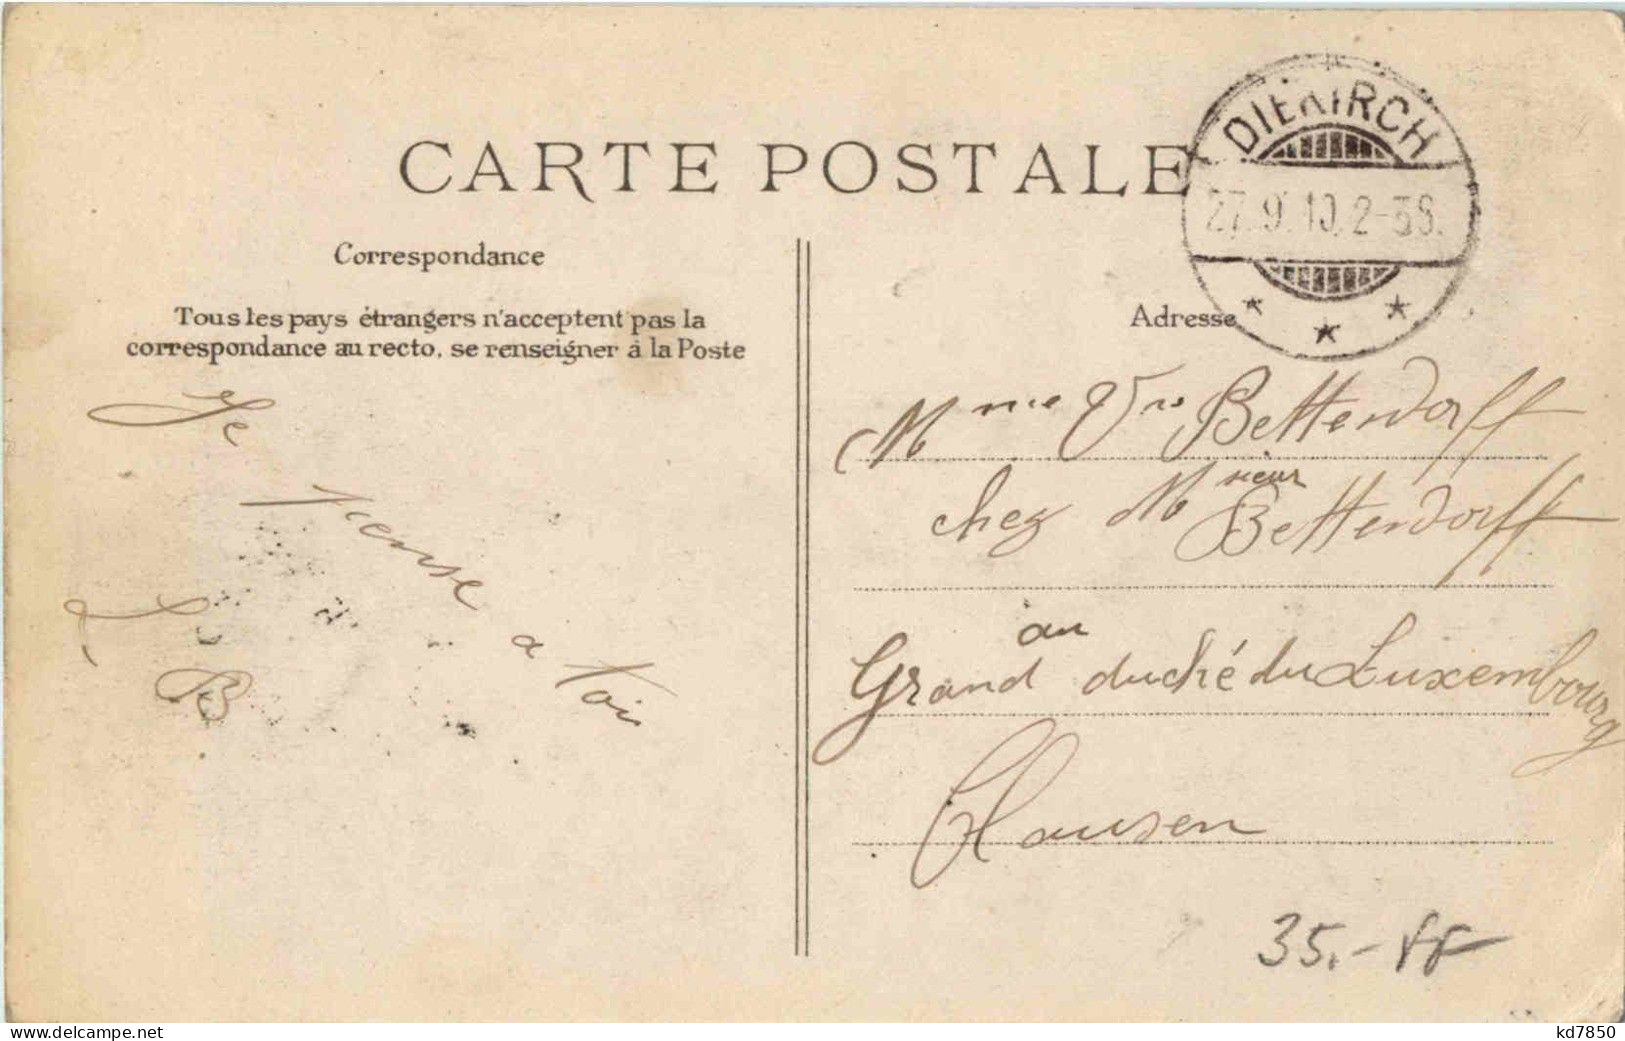 CARTE POSTALE
DIEKIRCH
27.9.10.2-3S.
Correspondance
Tous les pays étrangers n'acceptent pas la
correspondance au recto, se renseigner à la Poste
Je pense a toi
L B
Adresse
Mme Vve Bettendorff
chez Msieur Bettendorff
au
Grand duché du Luxembourg
Clausen
35.-
kd7850